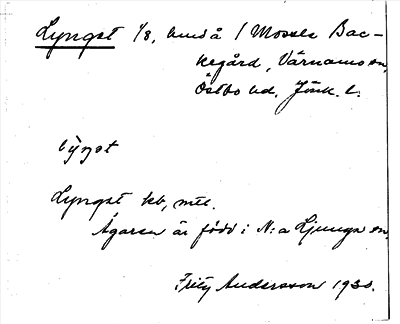 Lyngst 1/8, hmd å 1 Mossle Bac-
kegård, Värnamo sn,
Östbo hd, Jönk. l.
Lyngst kb, mtl.
Ägaren är född i N:a Ljunga sn.
Fritz Andersson 1930.